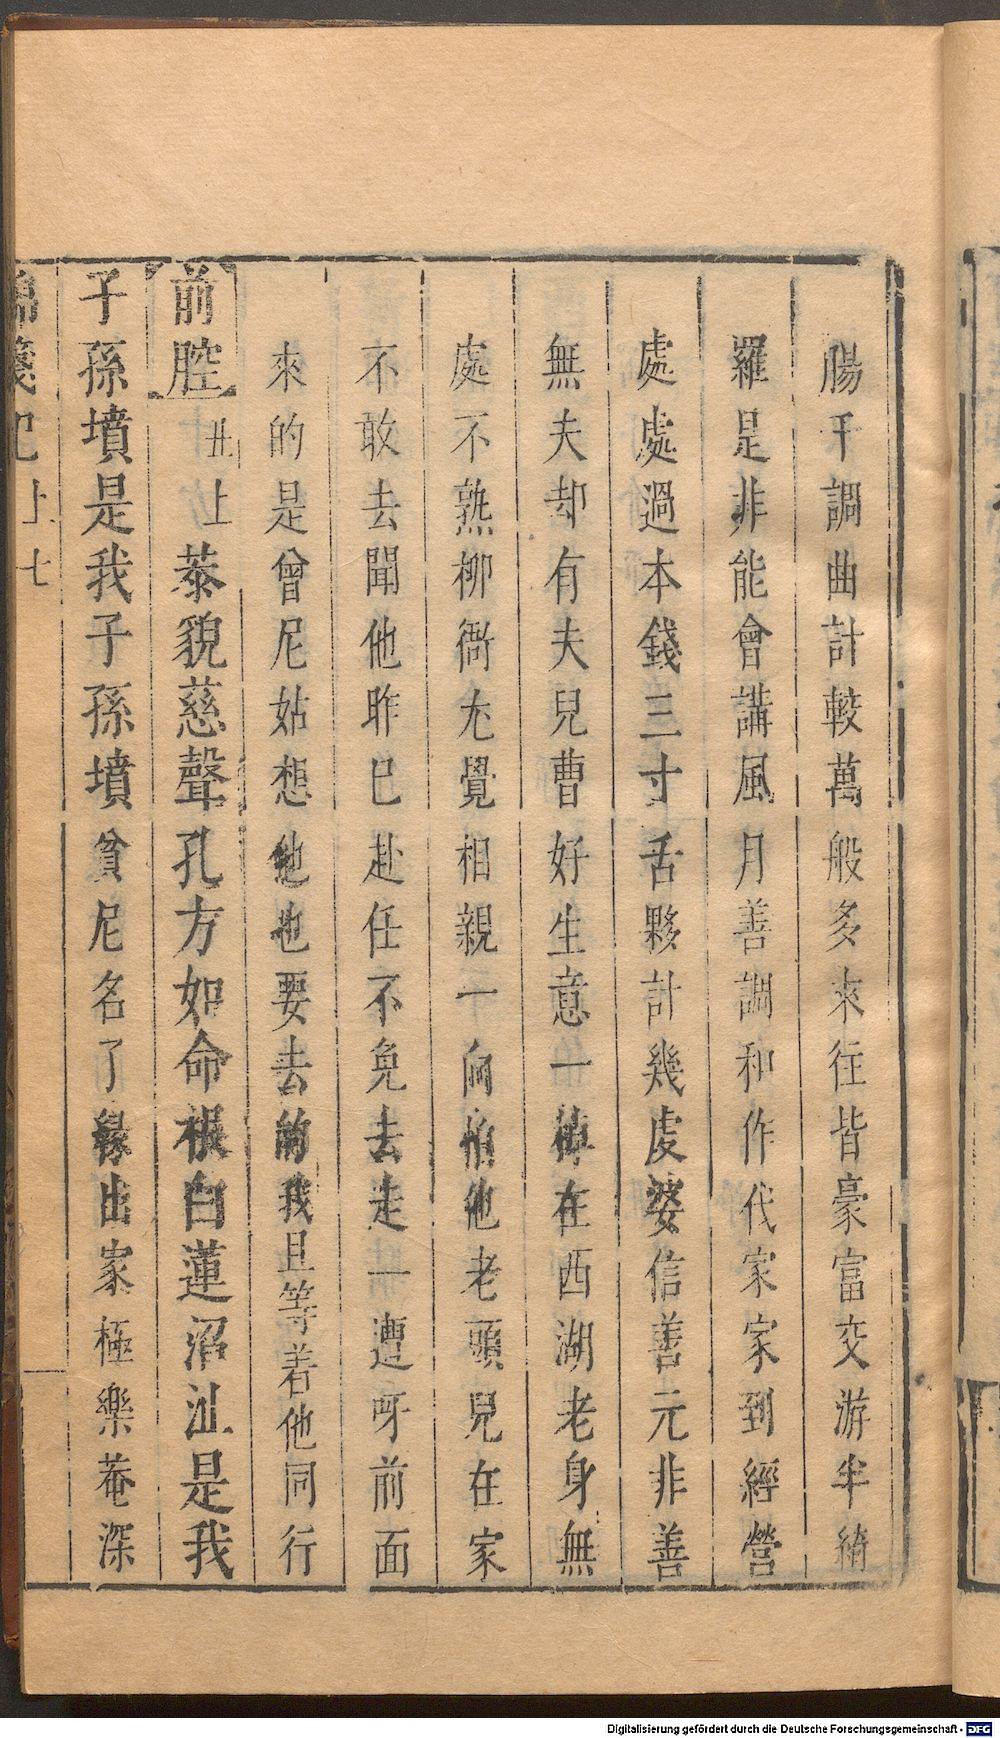 腸干調曲計較萬般多來往皆豪富交游半綺
羅是非能會講風月善調和作伐家家到經營
處處過本錢三寸舌夥計幾處婆信善元非善
無夫却有夫兒曹好生意一樁在西湖老身無
處不熟柳衙尤覺相親一向怕他老頭兒在家
不敢去聞他昨巳赴任不免去走一遭呀前面
來的是曾尼姑想他也要去的我且等着他同行
前腔 丑上 菾貌慈聲孔方如命根白蓮沼沚是我
子孫墳是我子孫墳貧尼名了緣出家極樂菴深
錦箋記 上 七
Digitalisierung gefördert durch die Deutsche Forschungsgemeinschaft - DFG